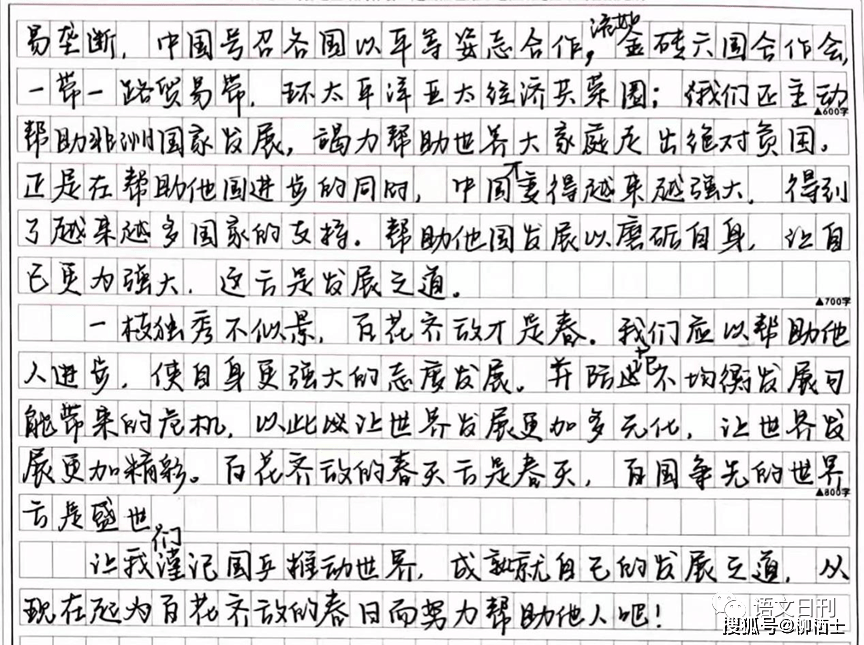 易垄断，中国号召各国以平等姿态合作，金砖六国合作会，
一带一路贸易带，环太平洋亚太经济共荣圈；我们还主动
▲600字
帮助非洲国家发展，竭力帮助世界大家庭走出绝对贫困。
正是在帮助他国进步的同时，中国变得越来越强大，得到
了越来越多国家的支持。帮助他国发展以磨砺自身，让自
己更为强大，这方是发展之道。
▲700字
一枝独秀不似景，百花齐放才是春。我们应以帮助他
人进步，使自身更强大的态度发展。并防不均衡发展可
能带来的危机，以此以让世界发展更加多元化，让世界发
展更加精彩。百花齐放的春天方是春天，百国争先的世界
▲800字
方是盛世
让我们谨记国乒推动世界，成就自己的发展之道，从
现在起为百花齐放的春日而努力帮助他人吧！
语文日刊
搜狐号@柳洒士